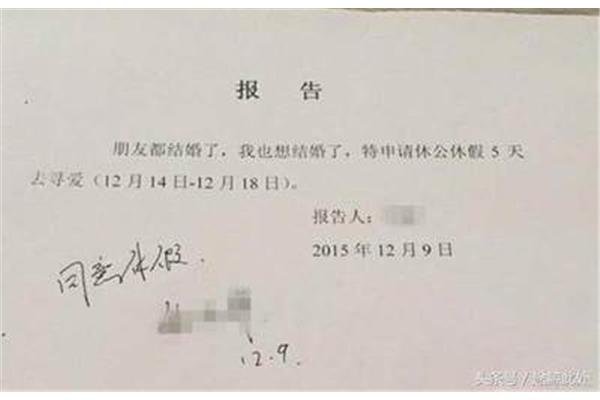 报 告
朋友都结婚了，我也想结婚了，特申请休公休假 5 天
去寻爱（12 月 14 日-12 月 18 日）。
报告人：
2015 年 12 月 9 日
同意休假.
12.9.
头条号 /